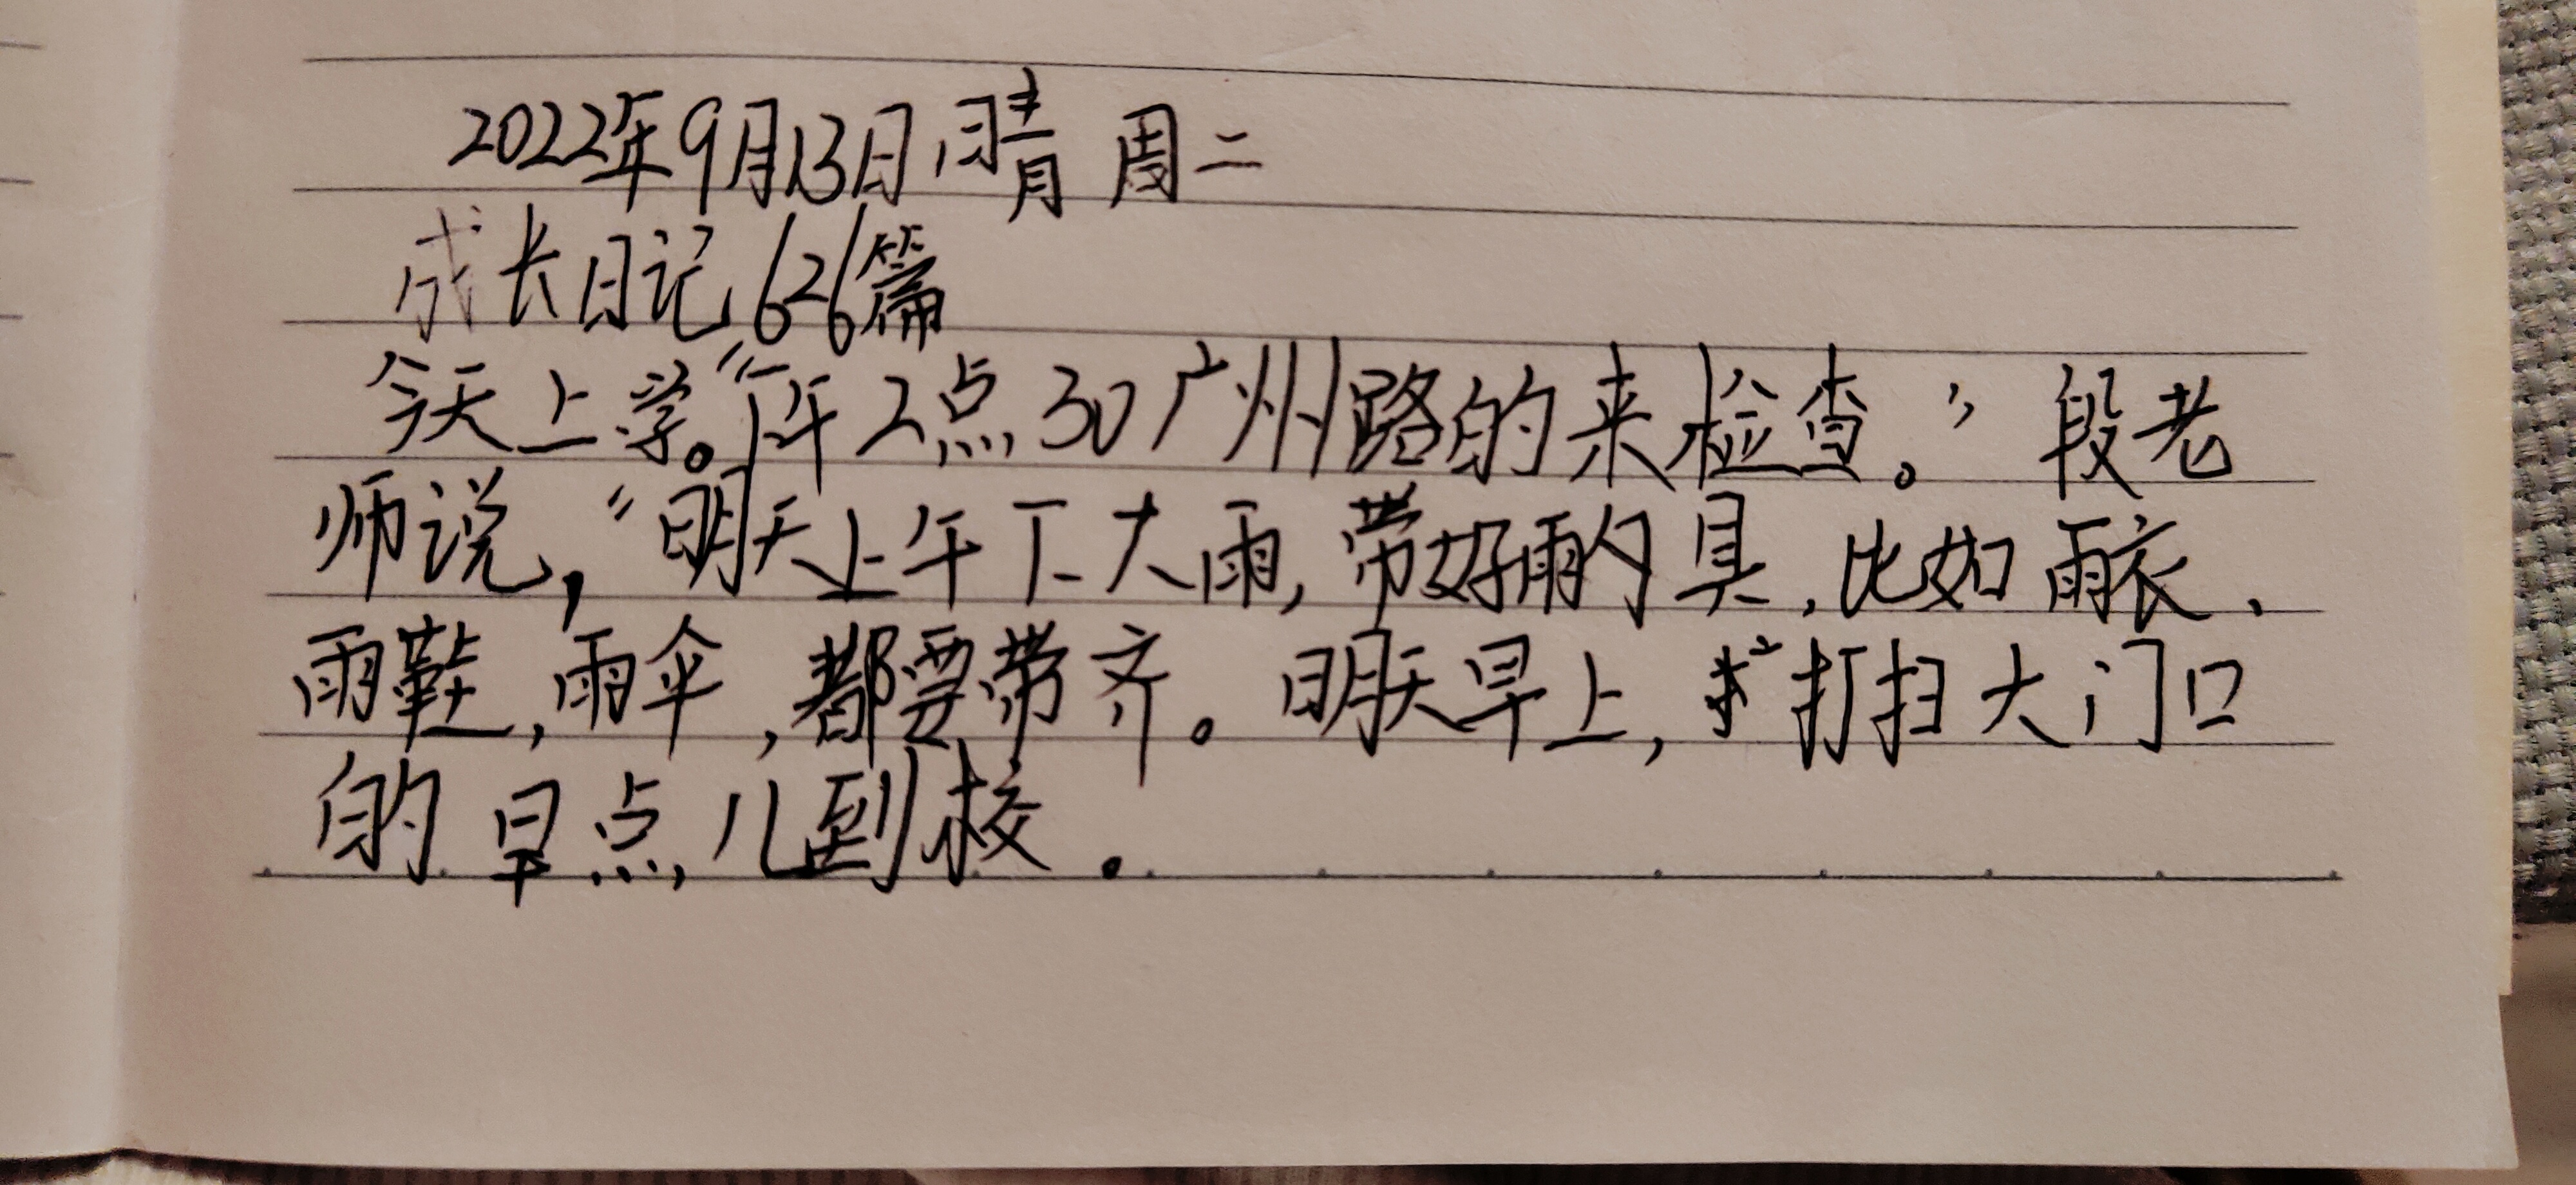 2022年9月13日 晴 周二
成长日记626篇
今天上学。“下午2点30广州路的来检查。”段老
师说，“明天上午下大雨，带好雨的具，比如雨衣、
雨鞋，雨伞，都要带齐。明天早上，打扫大门口
的早点儿到校。